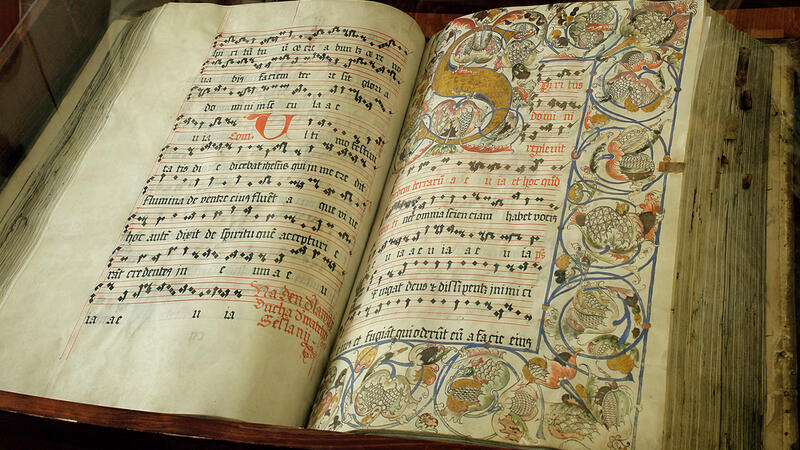 spi ri tū tu ū ce r a bun t̄ ᴂ re no
ua bis faciem ter re sit glori a
do mini in se cu la a e
u ia Com. U l ti mo festiui
ta tis di e dicebat ihesus qui in me cre dit
flumina de ventre eius fluēt a que vi ue
hoc autē dixit de spiritu quē accepturi e
rāt credentes in e um a e u
ia a e u ia
Na den Slawny
Ducha Swateho
Sessanij
S pi ri tus
do mi ni
repleuit
orbem terrarū a e u ia et hoc quod
ti net omnia scien ciam habet vocis
u ia a e u ia a e u ia ps
Exurgat deus & dissipent̄ in imi ci
eius et fugiāt qui oderūt eū a facie eius